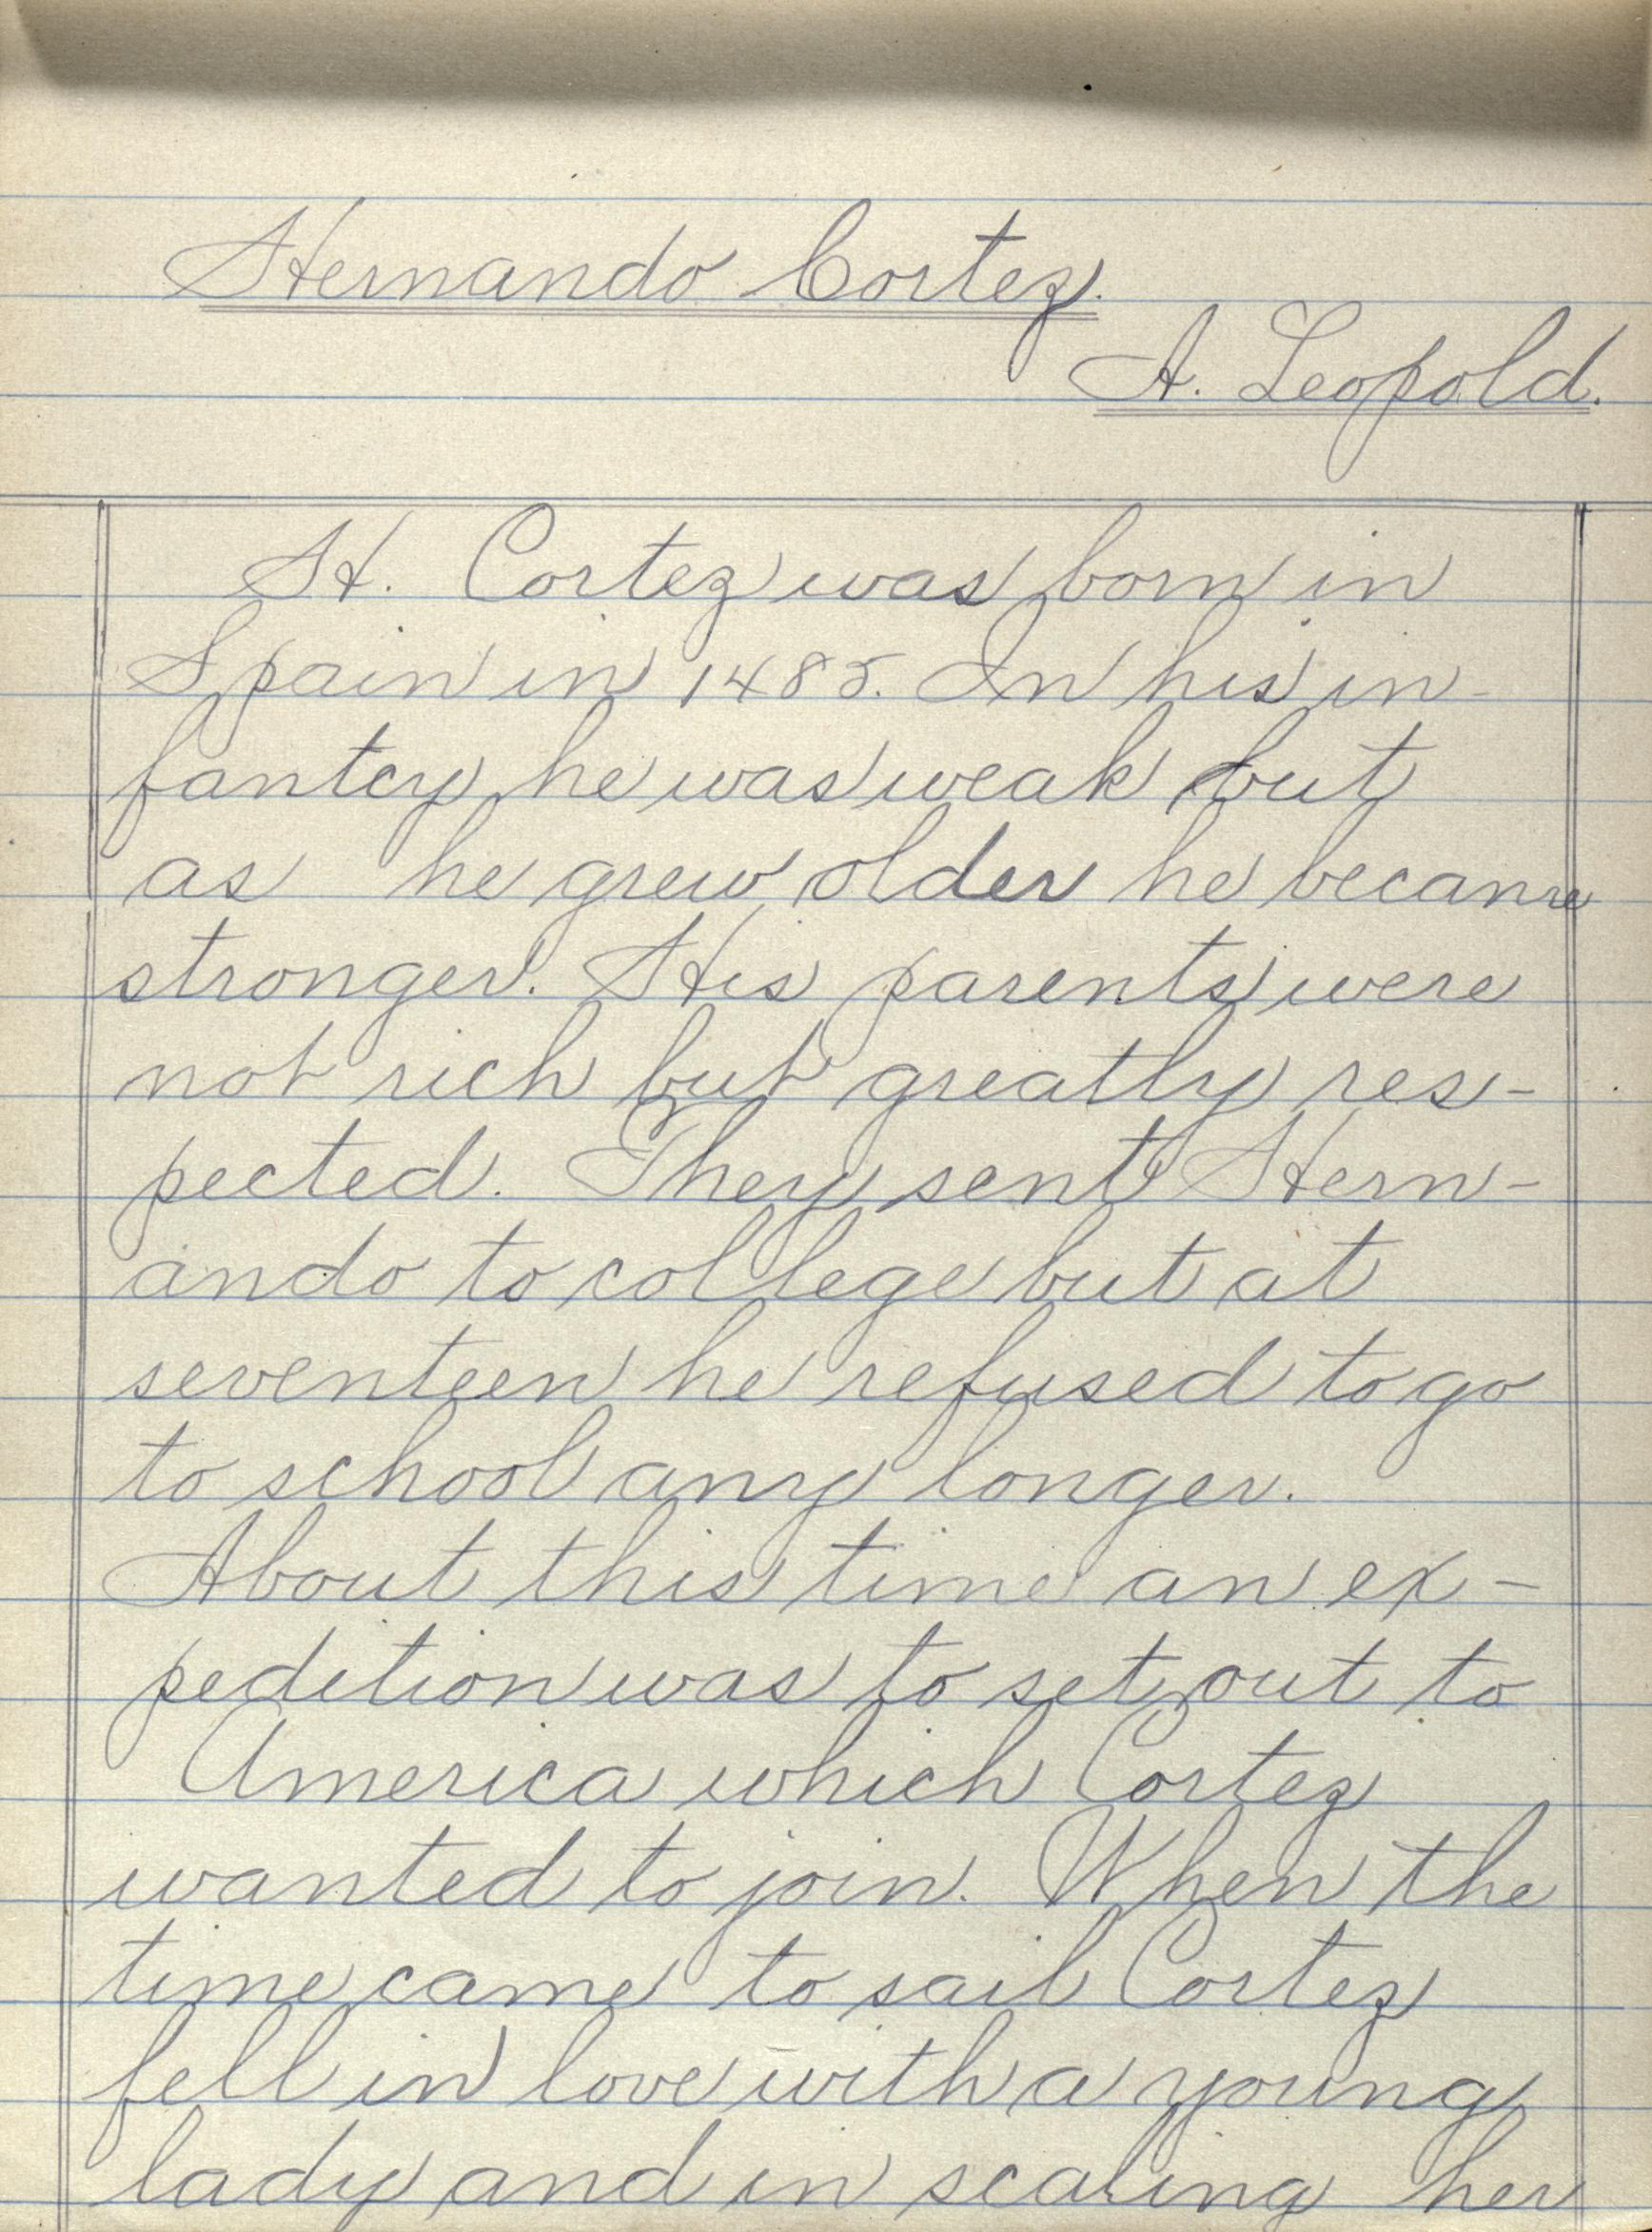 Hernando Cortez.
A. Leopold.
H. Cortez was born in
Spain in 1485. In his in-
fantcy he was weak but
as he grew older he became
stronger. His parents were
not rich but greatly res-
pected. They sent Hern-
ando to college but at
seventeen he refused to go
to school any longer.
About this time an ex-
pedition was to set out to
America which Cortez
wanted to join. When the
time came to sail Cortez
fell in love with a young
lady and in scaling her